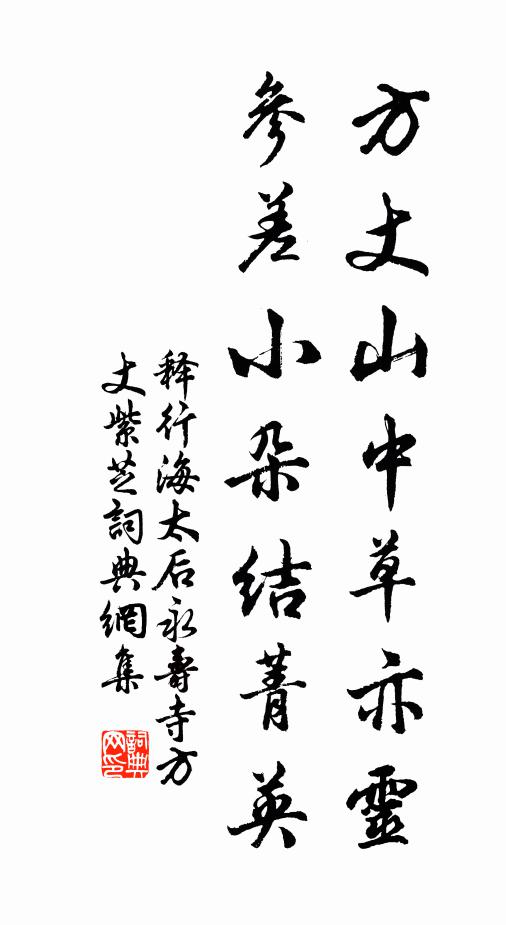 方丈山中草亦靈
參差小朵結菁英
释行海太后永壽寺方
丈紫芝詞典網集
詞典网印